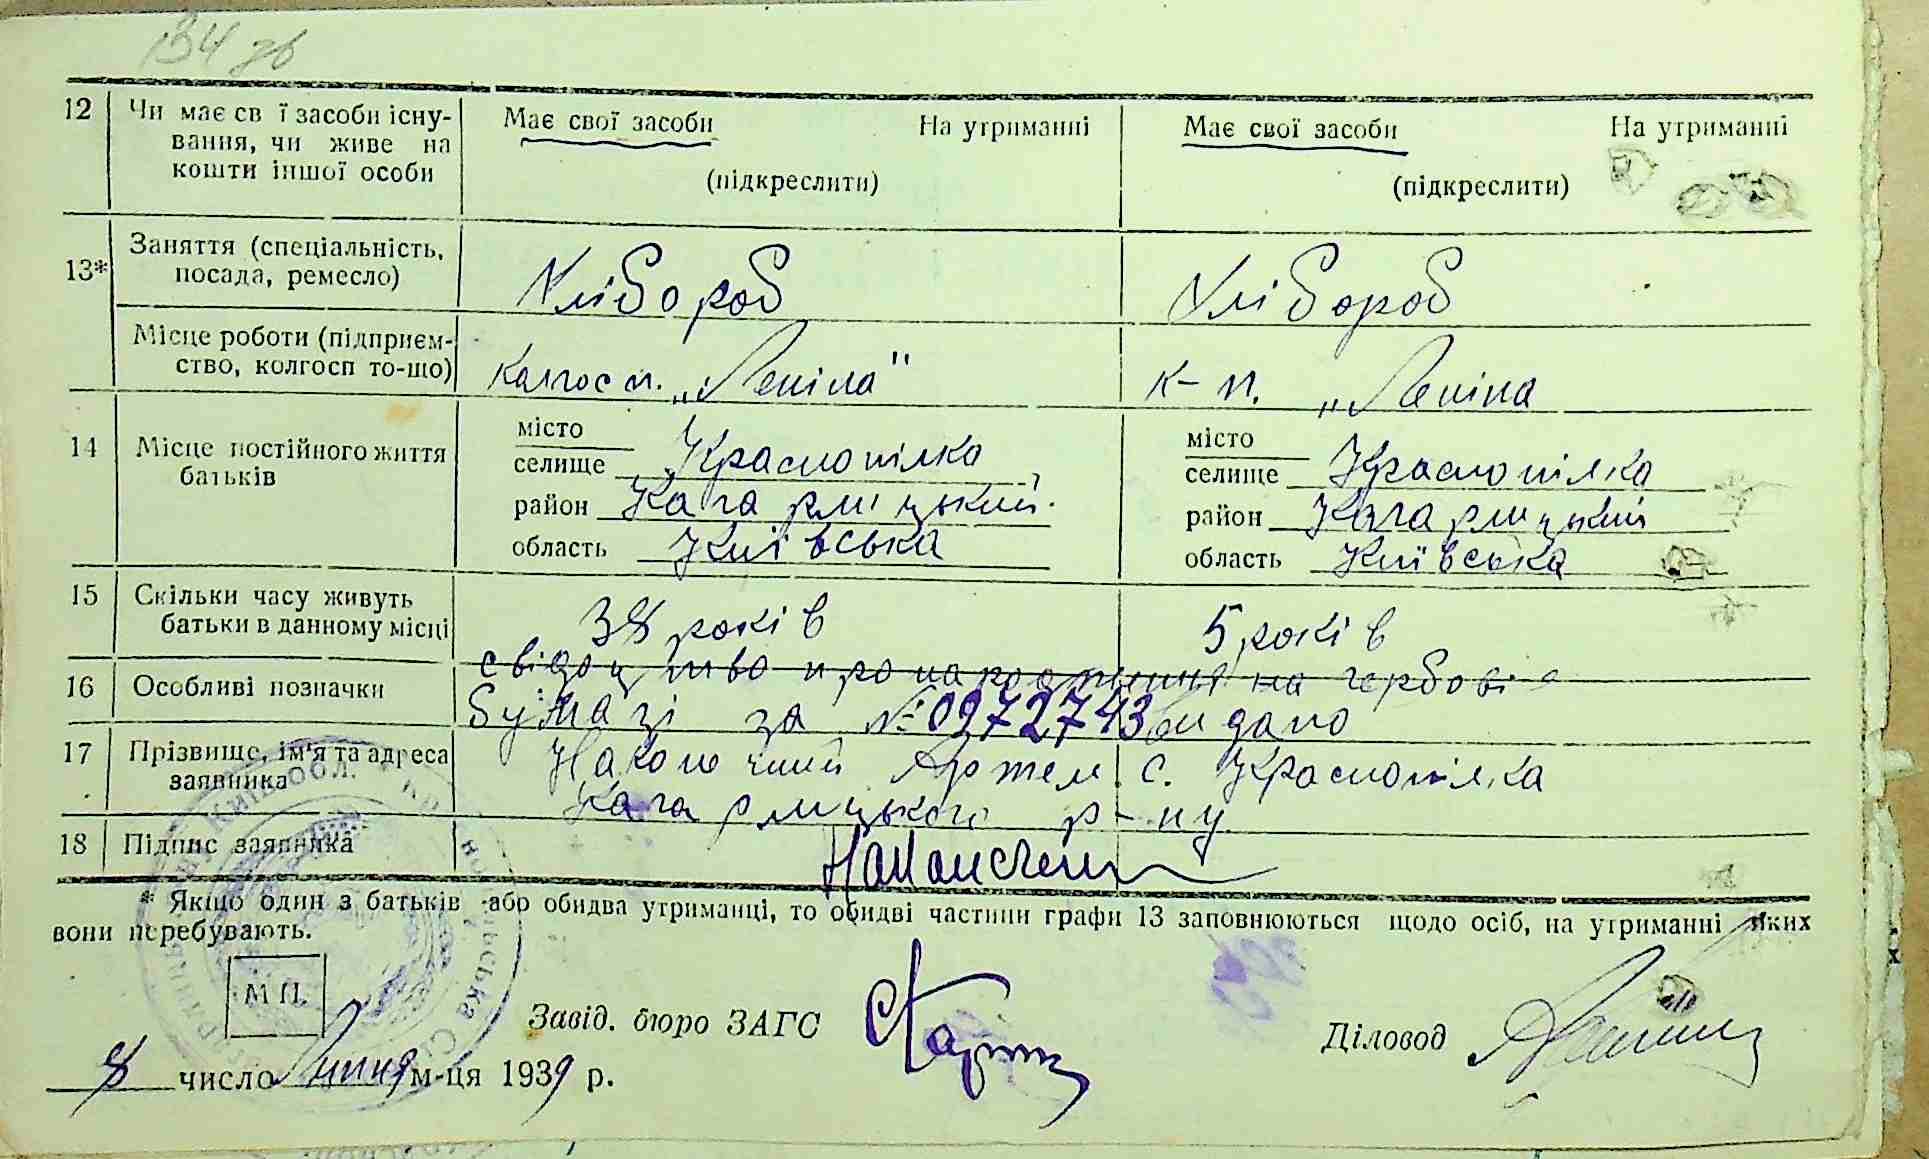 134 зв
12 Чи має св ї засоби існу- Має свої засоби На утриманні Має свої засоби На утриманні
вання, чи живе на
кошти іншої особи (підкреслити) (підкреслити)
13* Заняття (спеціальність,
посада, ремесло) Хлібороб Хлібороб
Місце роботи (підприєм-
ство, колгосп то-що) Колгосп. „Леніна" к-п. „Леніна
14 Місце постійного життя місто місто
батьків селище Краснопілка селище Краснопілка
район Кагарлицький район Кагарлицький
область Київська область Київська
15 Скільки часу живуть
батьки в данному місці 38 років 5 років
16 Особливі позначки свідоцтво про народження на гербові
бумазі за № 0972743 видано
17 Прізвище, ім'я та адреса Наконечний Артем с. Краснопілка
заявника Кагарлицького р-ну
18 Підпис заявника
* Якщо один з батьків або обидва утриманці, то обидві частини графи 13 заповнюються щодо осіб, на утриманні яких
вони перебувають.
М П.
Завід. бюро ЗАГС Діловод
8 число Липня м-ця 1939 р.